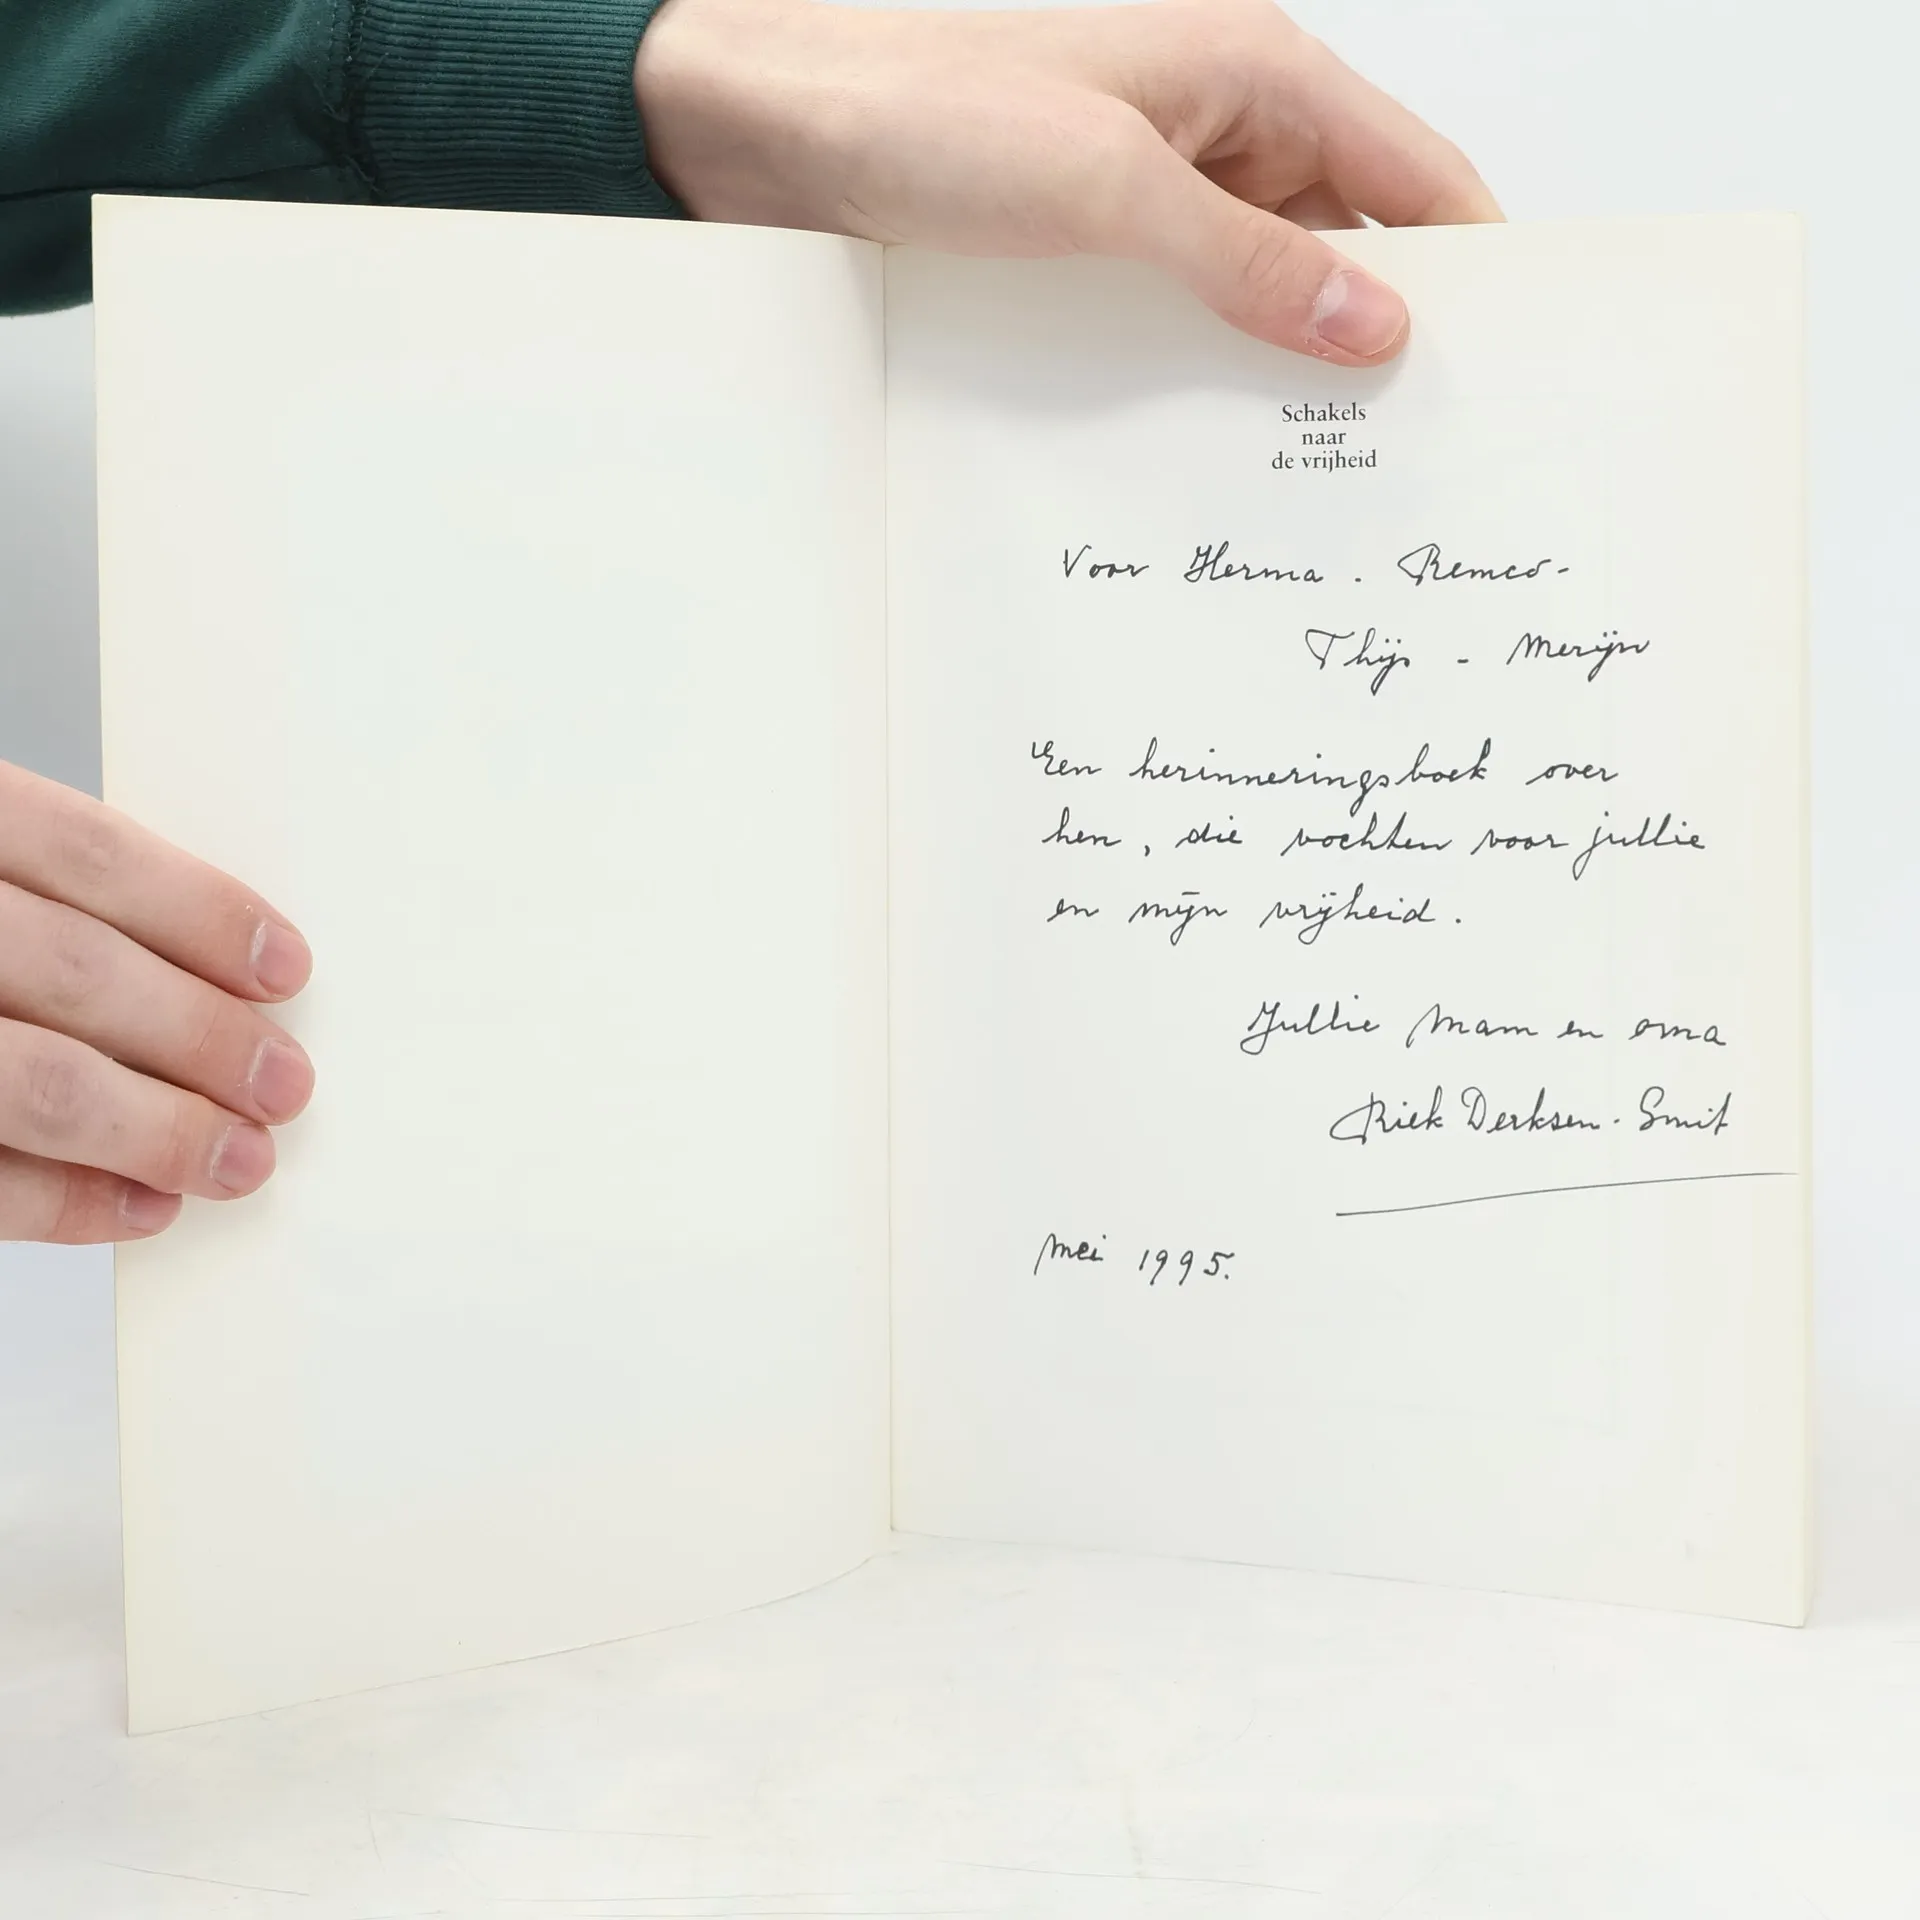 Schakels
naar
de vrijheid
Voor Herma . Remco -
Thijs - Merijn
Een herinneringsboek over
hen, die vochten voor jullie
en mijn vrijheid.
Jullie Mam en oma
Riek Derksen - Smit
Mei 1995.